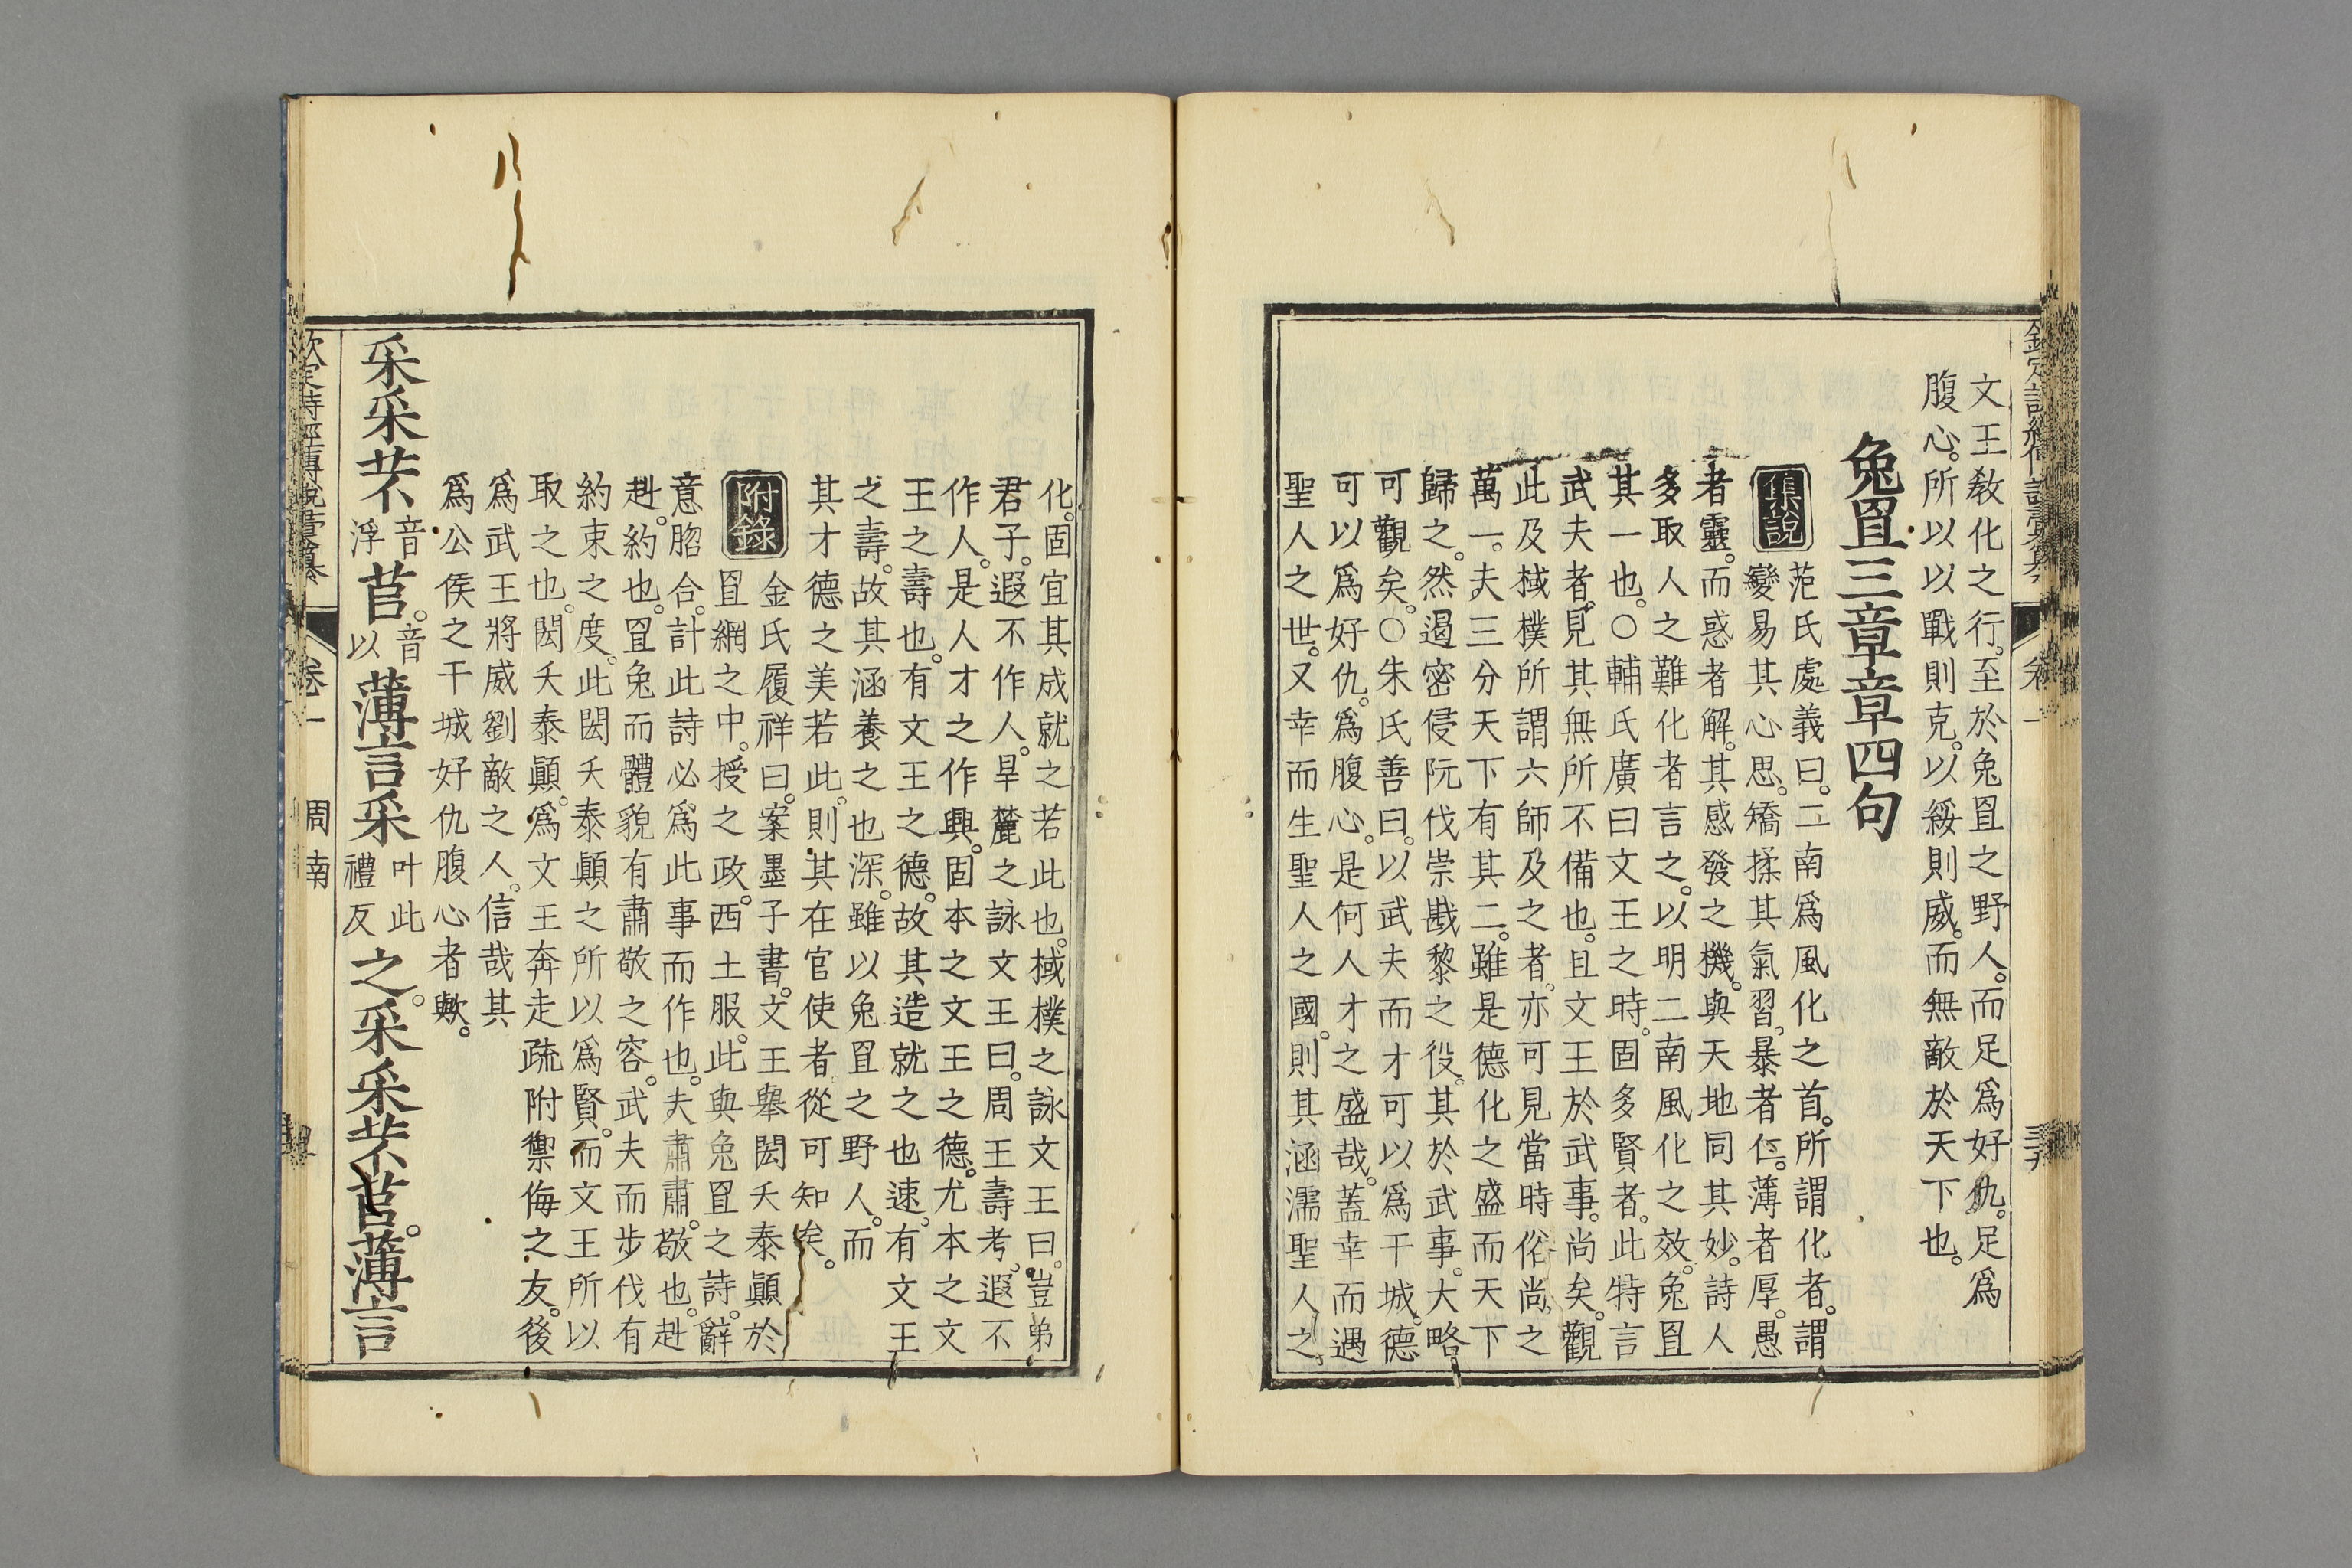 文王敎化之行。至於兔罝之野人。而足爲好仇。足爲
腹心。所以以戰則克。以綏則威。而無敵於天下也。
兔罝三章章四句
集說
范氏處義曰。二南爲風化之首。所謂化者。謂
變易其心思。矯揉其氣習。暴者仁。薄者厚。愚
者靈。而惑者解。其感發之機。與天地同其妙。詩人
多取人之難化者言之。以明二南風化之效。兔罝
其一也。○輔氏廣曰文王之時。固多賢者。此特言
武夫者。見其無所不備也。且文王於武事。尚矣。觀
此及棫樸所謂六師及之者。亦可見當時俗尚之
萬一。夫三分天下有其二。雖是德化之盛而天下
歸之。然遏密侵阮伐崇戡黎之役。其於武事。大略
可觀矣。○朱氏善曰。以武夫而才可以爲干城。德
可以爲好仇。爲腹心。是何人才之盛哉。蓋幸而遇
聖人之世。又幸而生聖人之國。則其涵濡聖人之
化。固宜其成就之若此也。棫樸之詠文王曰。豈弟
君子。遐不作人。旱麓之詠文王曰。周王壽考。遐不
作人。是人才之作興。固本之文王之德。尤本之文
王之壽也。有文王之德。故其造就之也速。有文王
之壽。故其涵養之也深。雖以兔罝之野人。而
其才德之美若此。則其在官使者從可知矣。
附錄
金氏履祥曰。案墨子書。文王舉閎夭泰顚於
罝網之中。授之政。西土服。此與兔罝之詩。辭
意脗合。計此詩必爲此事而作也。夫肅肅。敬也。赳
赳。約也。罝兔而體貌有肅敬之容。武夫而步伐有
約束之度。此閎夭泰顚之所以爲賢。而文王所以
取之也。閎夭泰顚。爲文王奔走疏附禦侮之友。後
爲武王將威劉敵之人。信哉其
爲公侯之干城好仇腹心者歟。
采采芣音浮苢。音以薄言采叶此禮反之。采采芣苢。薄言
卷一
周南